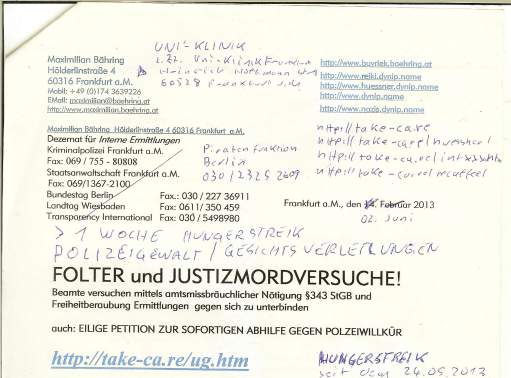 UNI-KLINIK
z.Zt. Uni-Klinik Frankfurt
Heinrich Hoffmann Str
60528 Frankfurt a.M.
Maximilian Bähring
Hölderlinstraße 4
60316 Frankfurt a.M.
Mobil: +49 (0)174 3639226
EMail: maximilian@baehring.at
http://www.maximilian.baehring.at
http://www.buvriek.baehring.at
http://www.reiki.dynip.name
http://www.huessner.dynip.name
http://www.dynip.name
http://www.nazis.dynip.name
Maximilian Bähring Hölderlinstraße 4 60316 Frankfurt a.M.
Dezernat für Interne Ermittlungen
Kriminalpolizei Frankfurt a.M.
Fax: 069 / 755 - 80808
Staatsanwaltschaft Frankfurt a.M.
Fax: 069/1367-2100
Bundestag Berlin Fax.: 030 / 227 36911
Landtag Wiesbaden Fax: 0611/ 350 459
Transparency International Fax: 030 / 5498980
Piratenfraktion
Berlin
030/2325 2609
http://take-ca.re
http://take-ca.re/
http://take-ca.re/
http://take-ca.re/
Frankfurt a.M., den 14. Februar 2013
02. Juni
> 1 WOCHE HUNGERSTREIK
POLIZEIGEWALT / GESICHTSVERLETZUNGEN
FOLTER und JUSTIZMORDVERSUCHE!
Beamte versuchen mittels amtsmissbräuchlicher Nötigung §343 StGB und
Freiheitberaubung Ermittlungen gegen sich zu unterbinden
auch: EILIGE PETITION ZUR SOFORTIGEN ABHILFE GEGEN POLZEIWILLKÜR
http://take-ca.re/ug.htm
HUNGERSTREIK
seit dem 24.05.2013